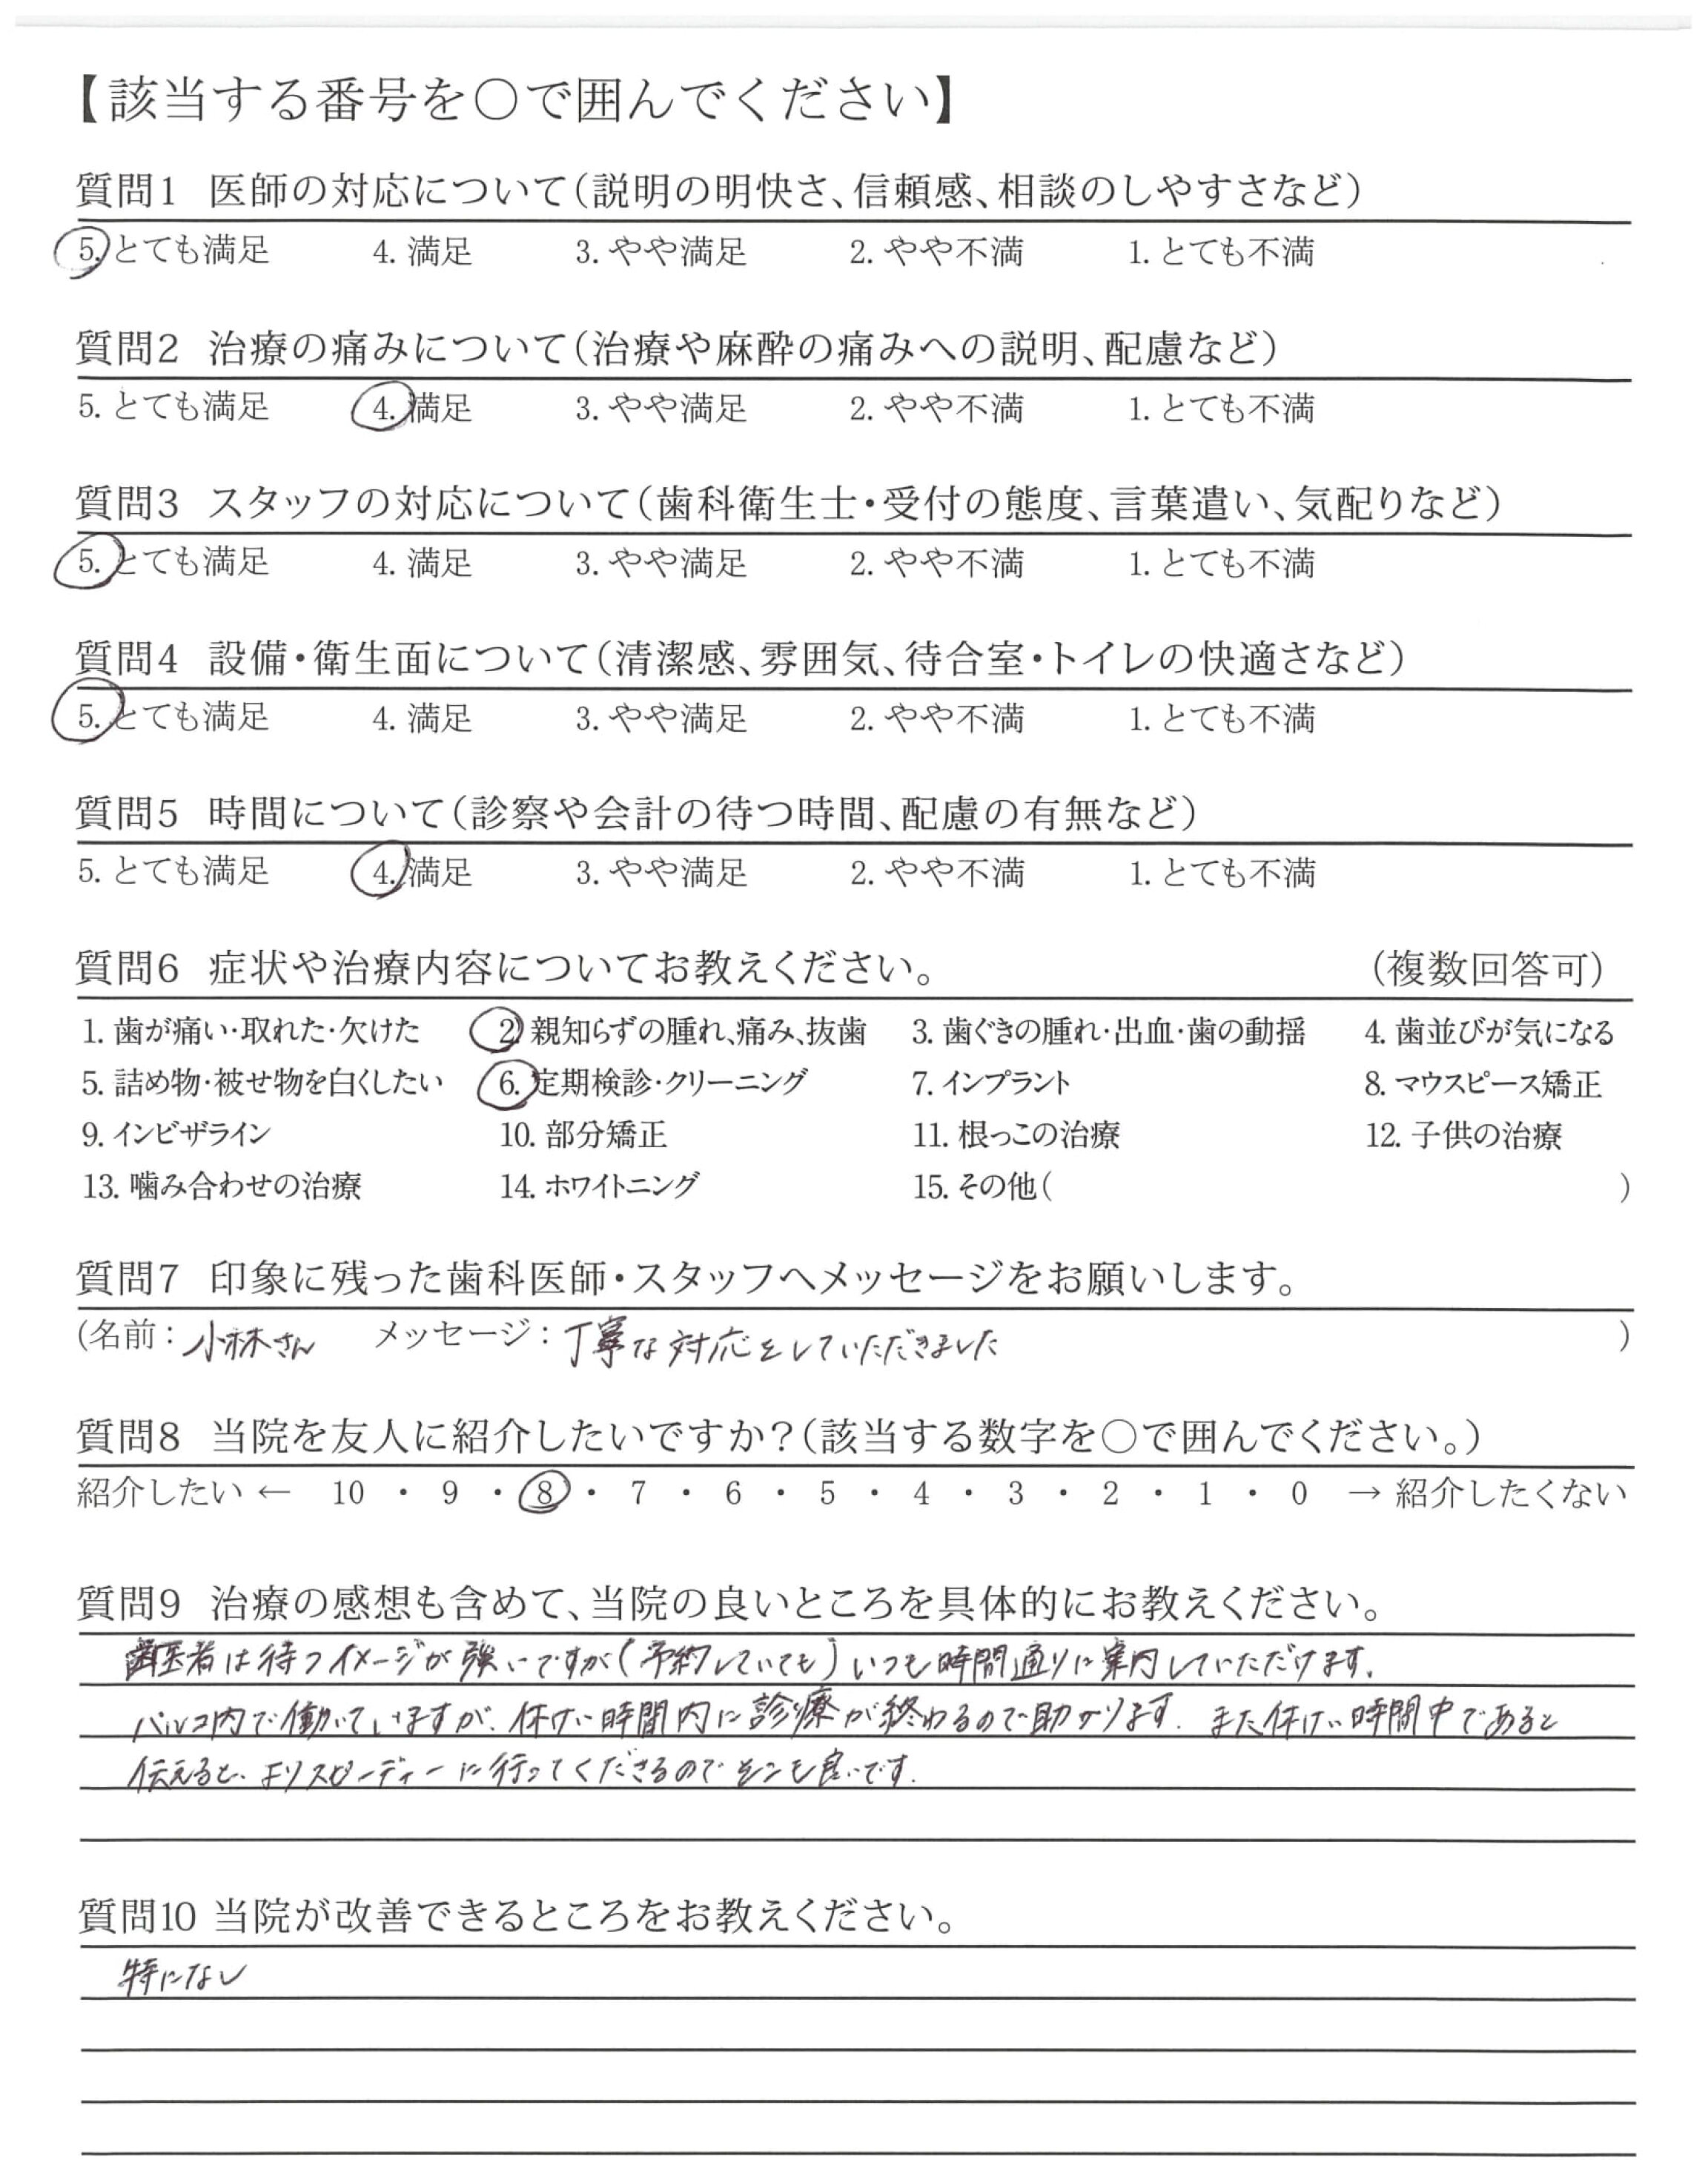 【該当する番号を〇で囲んでください】
質問1 医師の対応について(説明の明快さ、信頼感、相談のしやすさなど)
5. とても満足 4. 満足 3. やや満足 2. やや不満 1. とても不満
質問2 治療の痛みについて(治療や麻酔の痛みへの説明、配慮など)
5. とても満足 4. 満足 3. やや満足 2. やや不満 1. とても不満
質問3 スタッフの対応について(歯科衛生士・受付の態度、言葉遣い、気配りなど)
5. とても満足 4. 満足 3. やや満足 2. やや不満 1. とても不満
質問4 設備・衛生面について(清潔感、雰囲気、待合室・トイレの快適さなど)
5. とても満足 4. 満足 3. やや満足 2. やや不満 1. とても不満
質問5 時間について(診察や会計の待つ時間、配慮の有無など)
5. とても満足 4. 満足 3. やや満足 2. やや不満 1. とても不満
質問6 症状や治療内容についてお教えください。 (複数回答可)
1. 歯が痛い・取れた・欠けた 2. 親知らずの腫れ、痛み、抜歯 3. 歯ぐきの腫れ・出血・歯の動揺 4. 歯並びが気になる
5. 詰め物・被せ物を白くしたい 6. 定期検診・クリーニング 7. インプラント 8. マウスピース矯正
9. インビザライン 10. 部分矯正 11. 根っこの治療 12. 子供の治療
13. 噛み合わせの治療 14. ホワイトニング 15. その他( )
質問7 印象に残った歯科医師・スタッフへメッセージをお願いします。
(名前：小林さん メッセージ：丁寧な対応をしていただきました )
質問8 当院を友人に紹介したいですか？(該当する数字を〇で囲んでください。)
紹介したい ← 10 ・ 9 ・ 8 ・ 7 ・ 6 ・ 5 ・ 4 ・ 3 ・ 2 ・ 1 ・ 0 → 紹介したくない
質問9 治療の感想も含めて、当院の良いところを具体的にお教えください。
歯医者は待つイメージが強いですが(予約していても)いつも時間通りに案内していただけます。
パルコ内で働いていますが、休けい時間内に診療が終わるので助かります。また休けい時間中であると
伝えると、よりスピーディーに行ってくださるのでそこも良いです。
質問10 当院が改善できるところをお教えください。
特になし